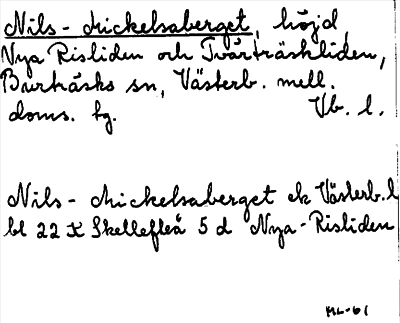 Nils-Mickelsaberget, höjd,
Nya Risliden och Tvärträskliden,
Burträsks sn, Västerb. mell.
doms. fg. Vb. l.
Nils-Mickelsaberget ek Västerb. l
bl 22 K Skellefteå 5 d Nya-Risliden
ML-61